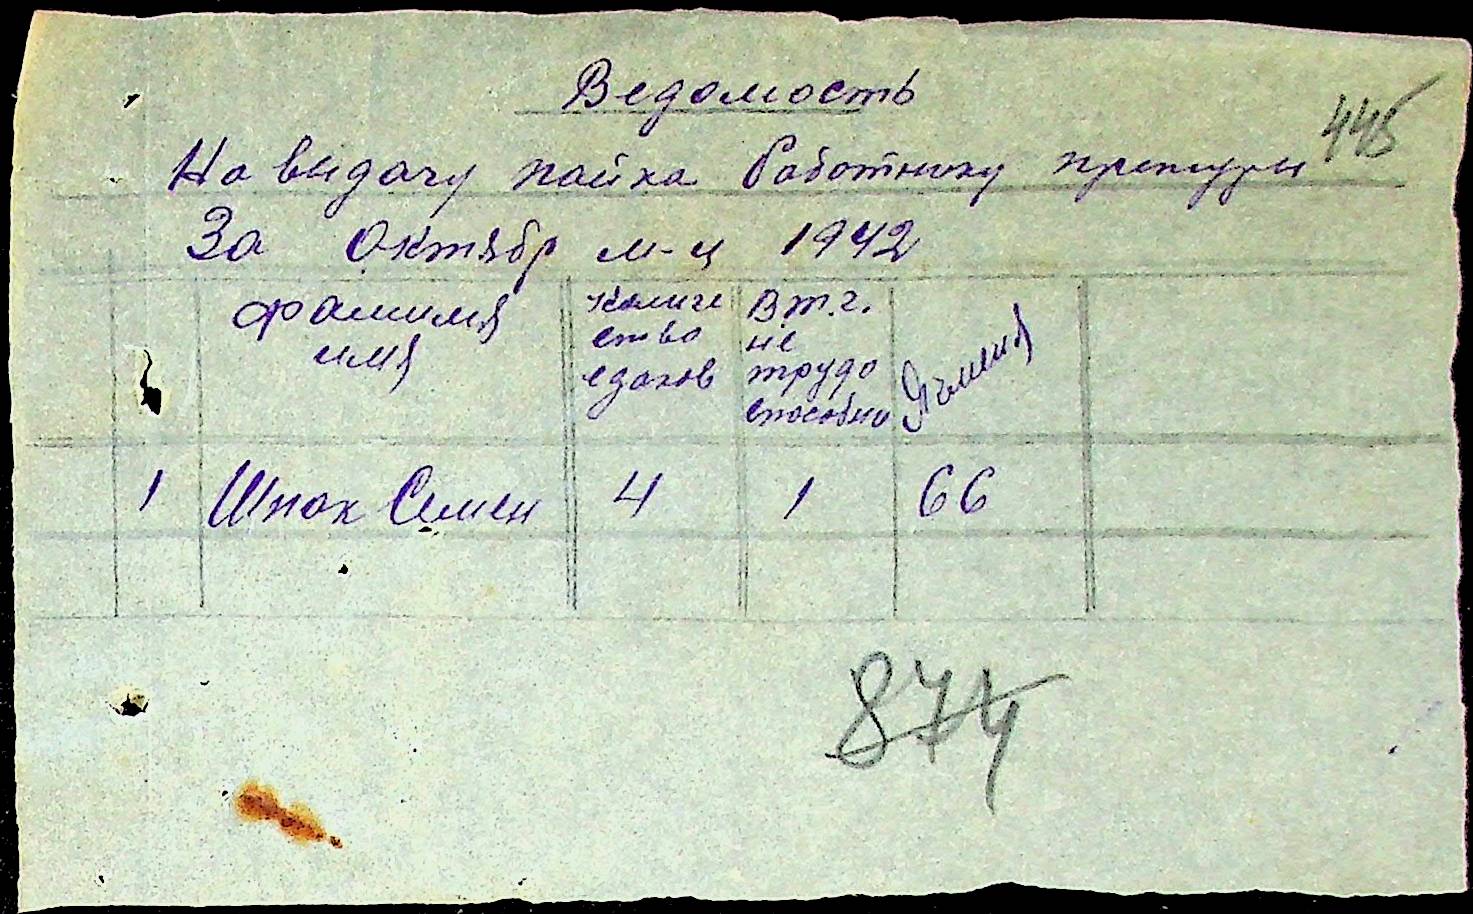 Ведомость
445
На выдачу пайка работнику
За октябр м-ц 1942
фамилия
имя
количе
ство
едоков
В т.ч.
не
трудо
способн
Ячменя
1 Шпак Семен 4 1 66
874